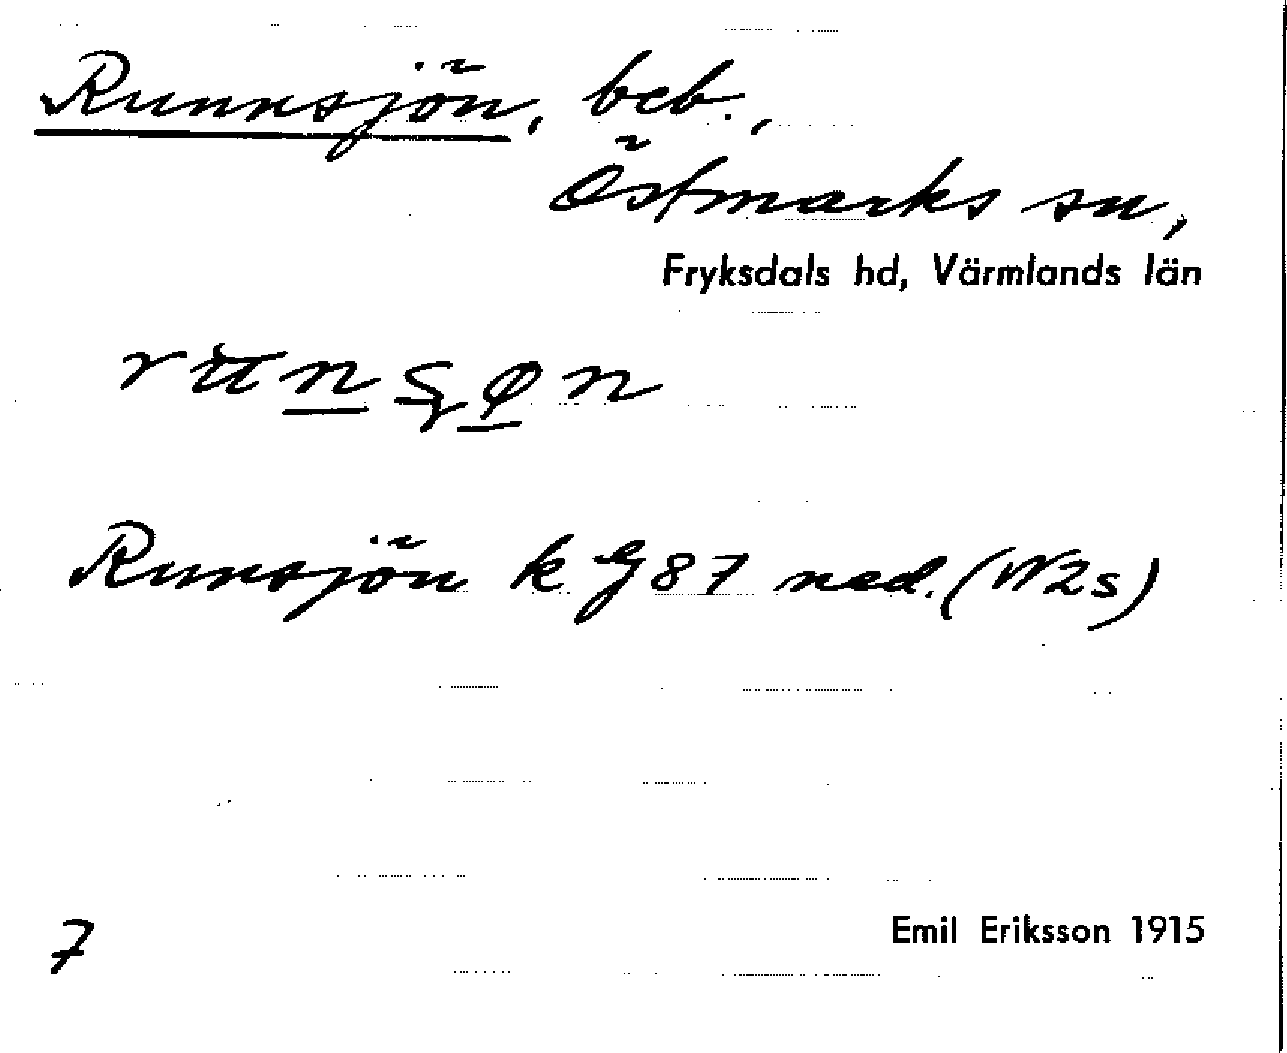 Runnsjön, beb.,
Östmarks sn,
Fryksdals hd, Värmlands län
Runsjön k G 87 ned. (W2s)
7
Emil Eriksson 1915